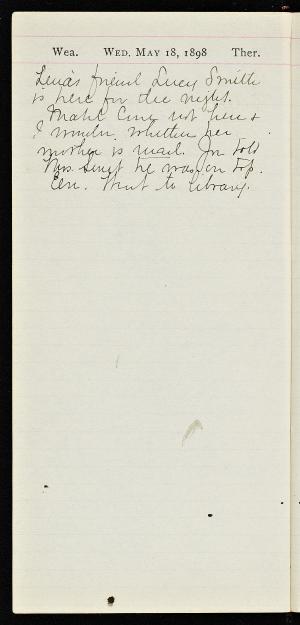 Wea. WED, MAY 18, 1898 Ther.
Lena's friend Lucy Smith
is here for the night.
Mabel not here &
I wonder whether her
mother is mad. Jn told
Mrs. he was on top.
Went to library.